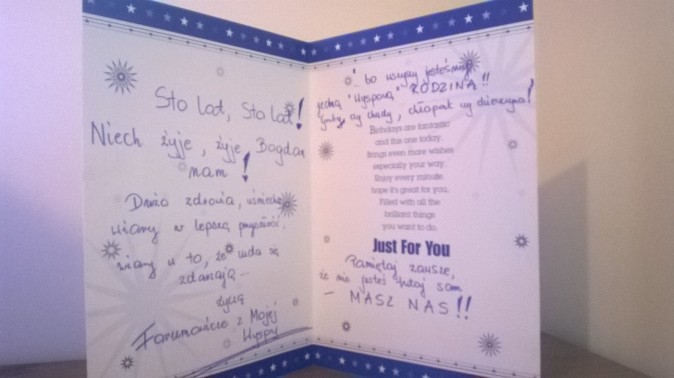 Sto lat, Sto lat!
Niech żyje, żyje Bogdan
nam!
Dużo zdrowia, uśmiechu
wiary w lepszą przyszłość.
wiary w to, że cuda się
zdarzają –
życzą
Forumowicze z Mojej
Wyspy
"bo wszyscy jesteśmy
jedną "Wyspową" RODZINĄ!!
Gruby, czy chudy, chłopak czy dziewczyna!
Birthdays are fantastic
and this one today.
Brings even more wishes
especially your way.
Enjoy every minute,
hope it's great for you,
Filled with all the
brilliant things
you want to do.
Just For You
Pamiętaj zawsze,
że nie jesteś tutaj sam
– MASZ NAS!!